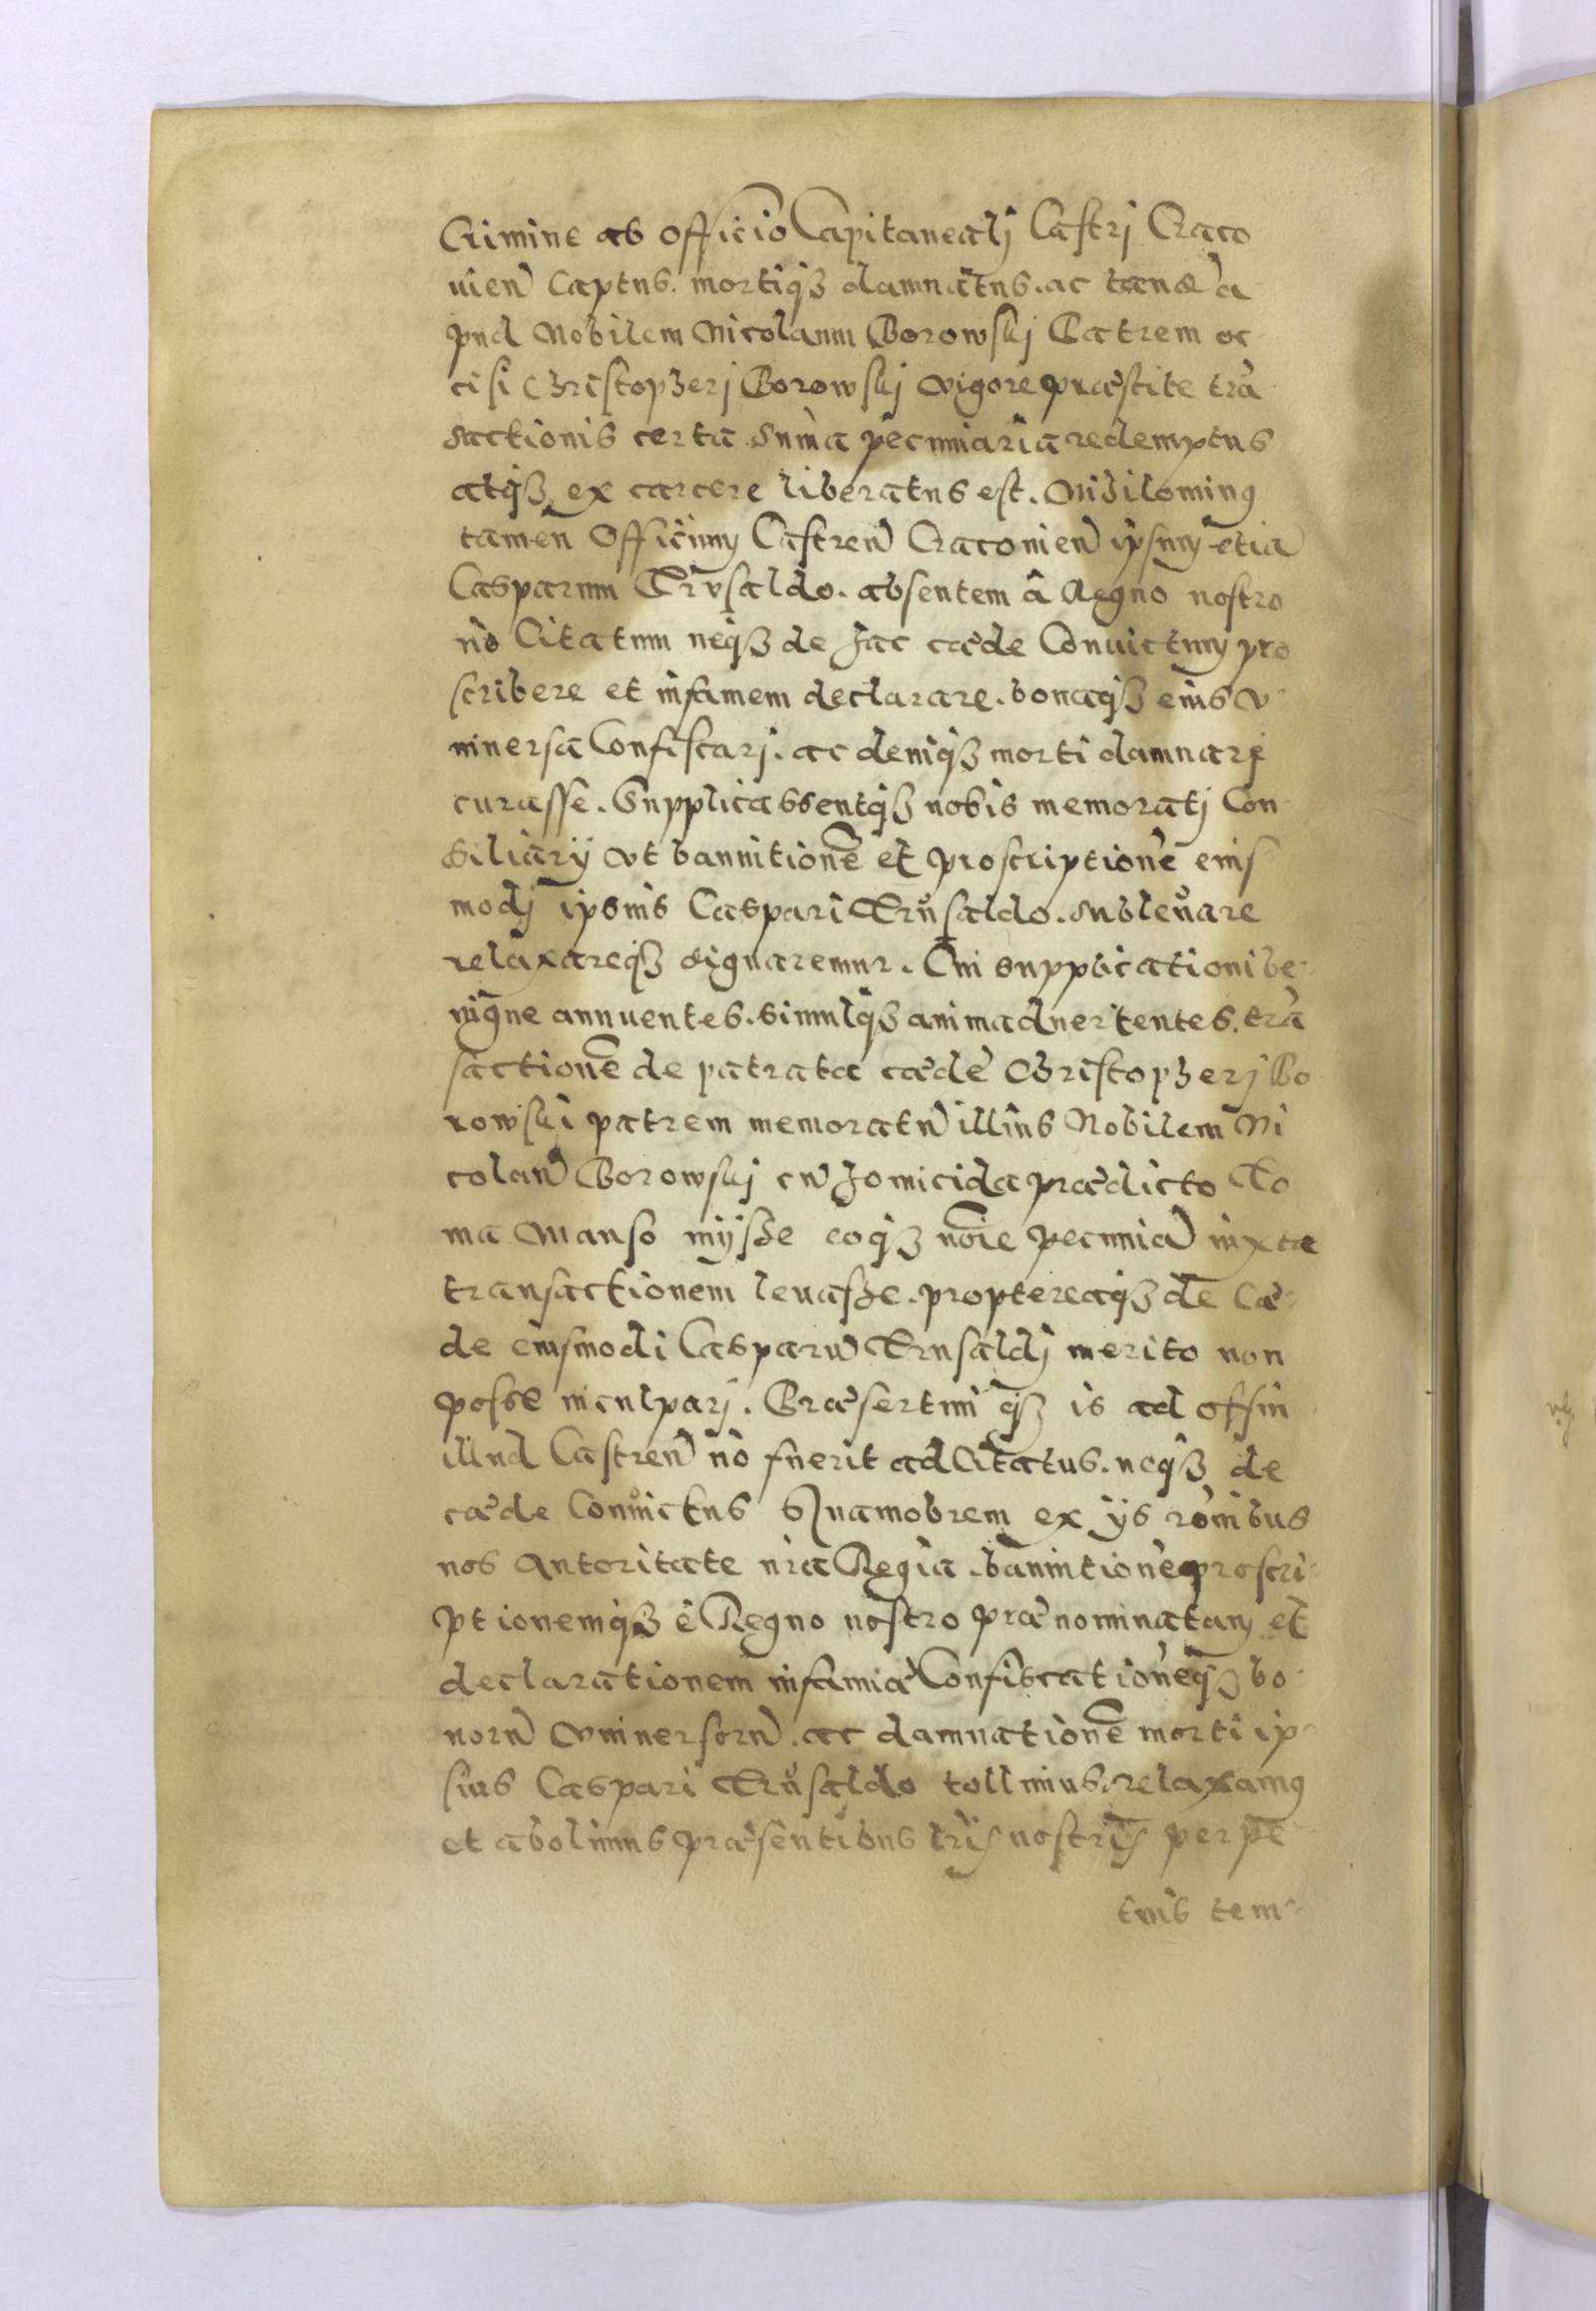 Crimine ab officio Capitanealj Castrj Craco
uien̄ Captus. mortiq₃ damnatus. ac tandē a
pud Nobilem Nicolaum Borowskj Patrem oc
cisi Christopherj Borowskj vigore præstite trā
sactionis certa sum̄a pecuniaria redemptus
atq₃ ex carcere liberatus est. Nihilominus
tamen Officium Castren̄ Cracouien̄ ipsum etiā
Casparum Crusaldo. absentem â Regno nostro
nō Citatum neq₃ de hac cæde Conuictum pro
scribere et infamem declarare. bonaq₃ eius v
niuersa Confiscarj. ac deniq₃ morti damnarj
curasse. Supplicassentq₃ nobis memoratj Con
siliarij vt bannitionē et proscriptionē eius
modj ipsius Caspari Crusaldo. subleuare
relaxareq₃ dignaremur. Cui supplicationi be-
nigne annuentes. simulq₃ animaduertentes. trā
sactionē de patrata cæde Christopherj Bo
rowski patrem memoratū illius Nobilem Ni
colaū Borowskj cū homicida prædicto To
ma Manso inijsse eoq₃ noīe pecuniā iuxta
transactionem leuasse. proptereaq₃ de Cæ-
de eiusmodi Casparū Crusaldj merito non
posse inculparj. Præsertim q₃ is ad offin
illud Castren̄ nō fuerit ad Citatus. neq₃ de
cæde Conuictus Quamobrem ex ijs rōnibus
nos Autoritate nrā Regia. bannitionē proscri-
ptionemq₃ ê Regno nostro prænominatam et
declarationem infamiæ Confiscationēq₃ bo
norū vniuersorū. ac damnationē morti ip-
sius Caspari Crusaldo tollimus. relaxamus
et abolimus præsentibus lrīs nostris perpe
tuis tem-